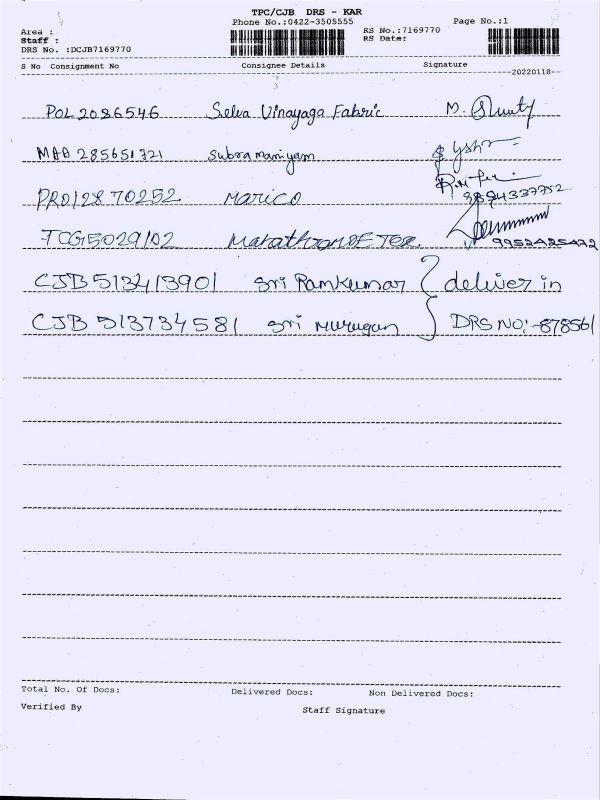 TPC/CJB DRS - KAR
Phone No.:0422-3505555
Page No.:1
Area :
RS No.:7169770
Staff :
RS Date:
DRS No. :DCJB7169770
S No Consignment No Consignee Details Signature
20220118
POL2086546 Selva Vinayaga Fabric M.
MAA 285651721 Subramaniyam
PRD12870252 Marico
TCG5029102
9952425472
CJB 513413901 Sri Ramkumar } deliver in
CJB 513734581 Sri Murugan } DRS NO:-878561
Total No. Of Docs: Delivered Docs: Non Delivered Docs:
Verified By Staff Signature